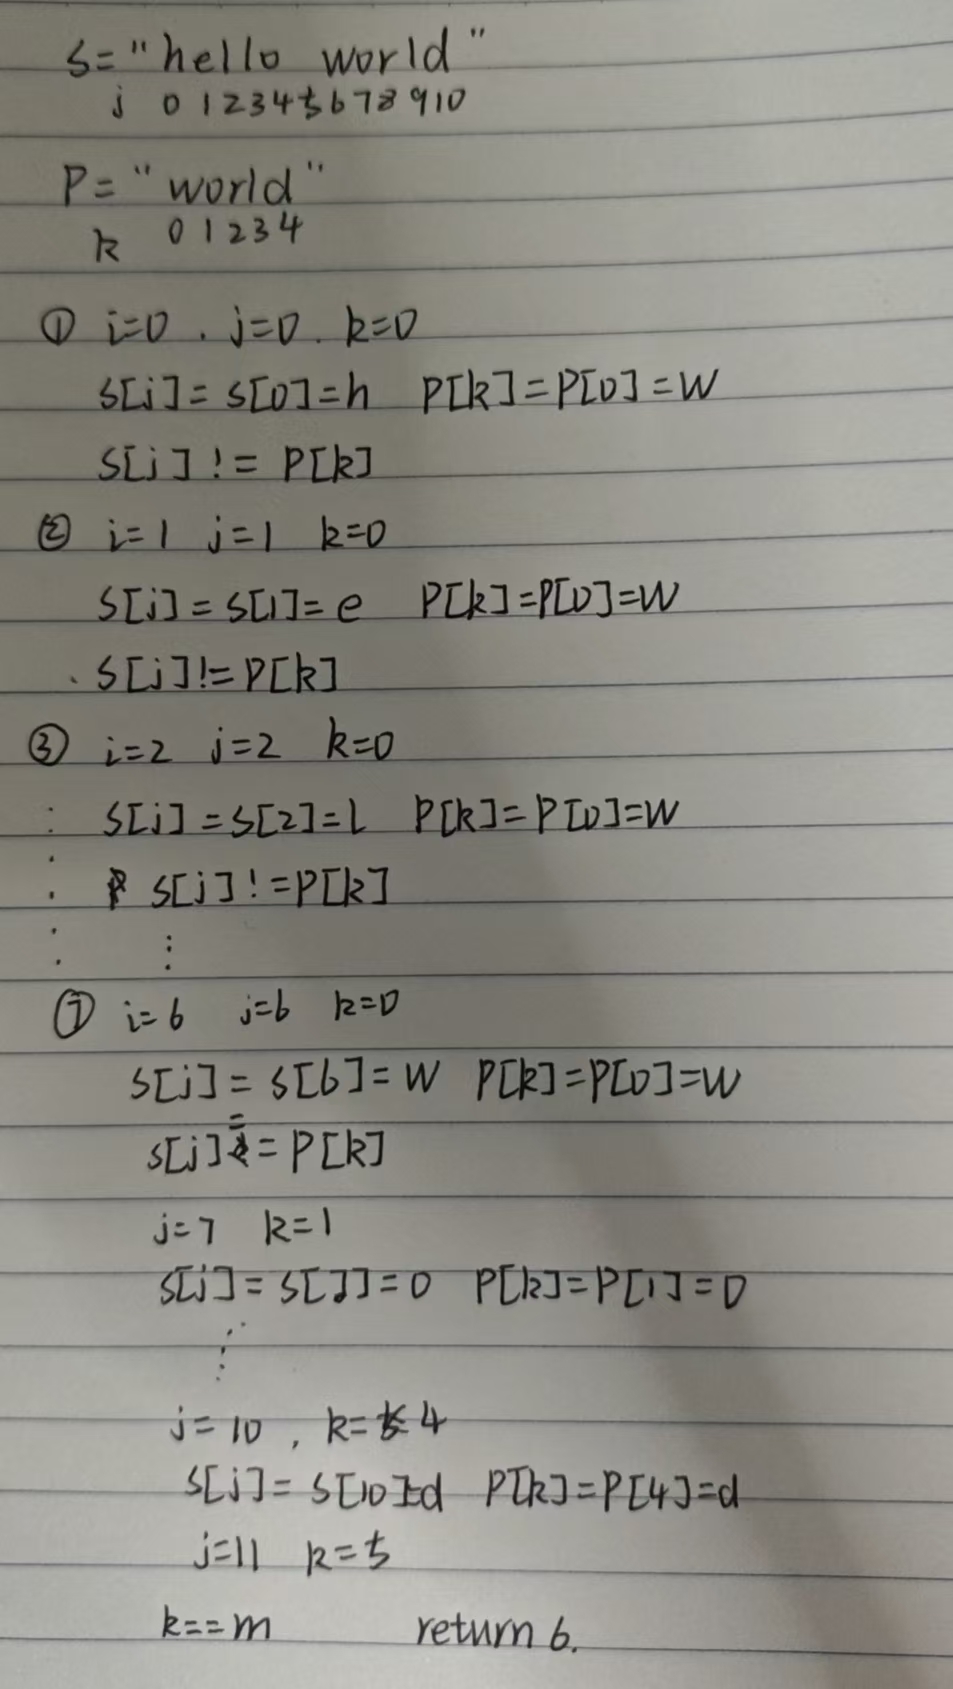 S="hello world"
j 0 1 2 3 4 5 6 7 8 9 10
P="world"
k 0 1 2 3 4
① i=0 . j=0 . k=0
S[j]=S[0]=h P[k]=P[0]=W
S[j] != P[k]
② i=1 j=1 k=0
S[j]=S[1]=e P[k]=P[0]=W
. S[j]!=P[k]
③ i=2 j=2 k=0
S[j]=S[2]=L P[k]=P[0]=W
S[j]!=P[k]
⋮
⑦ i=6 j=6 k=0
S[j]=S[6]=W P[k]=P[0]=W
S[j]==P[k]
j=7 k=1
S[j]=S[7]=0 P[k]=P[1]=0
⋮
j=10 , k=4
S[j]=S[10]=d P[k]=P[4]=d
j=11 k=5
k==m return 6.